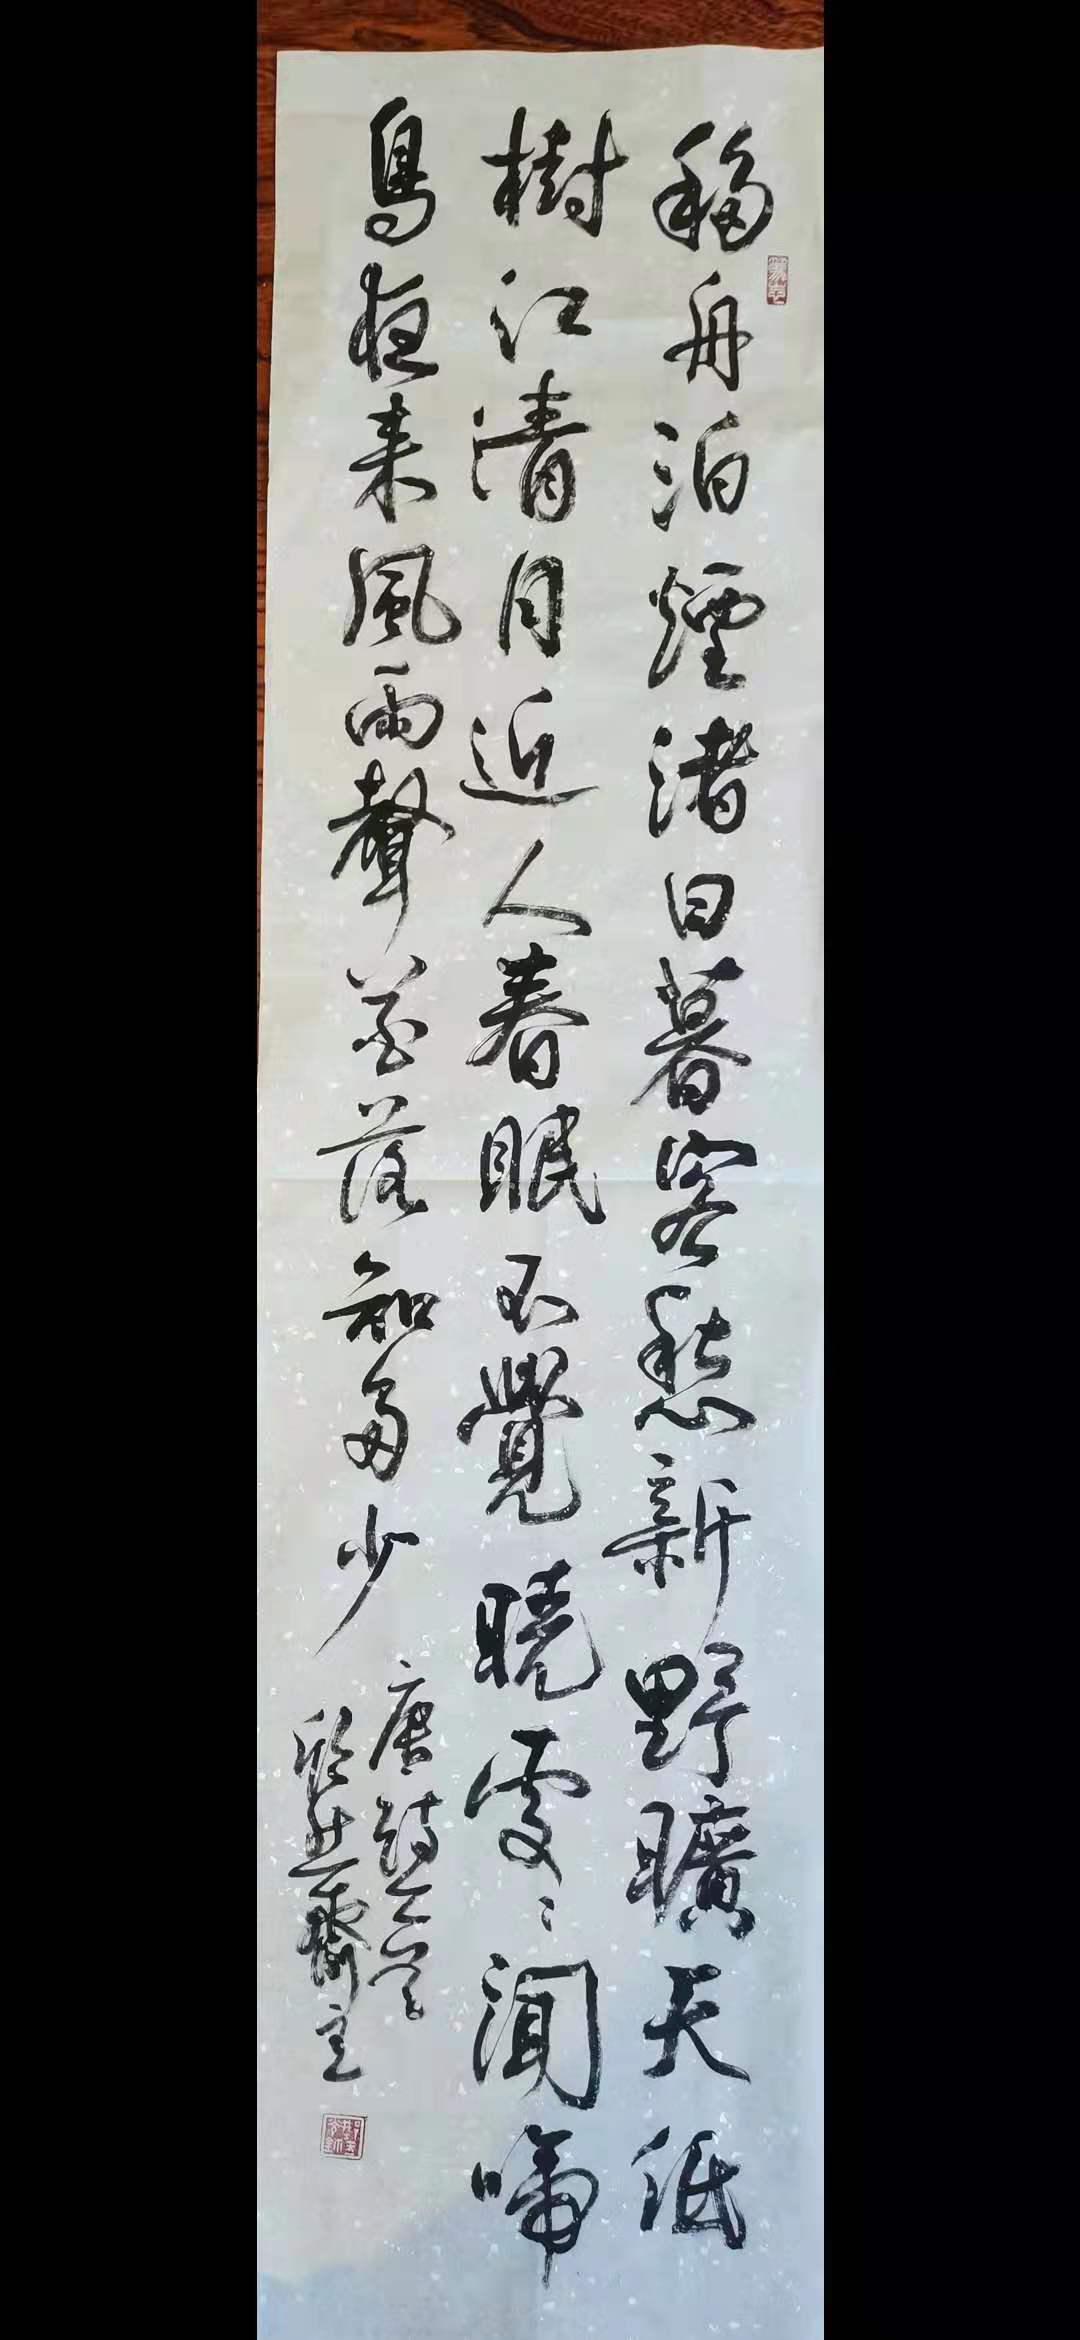 移舟泊煙渚日暮客愁新野曠天低
樹江清月近人春眠不覺曉處〻聞啼
鳥夜来風雨聲花落知多少
唐詩二首
齋主